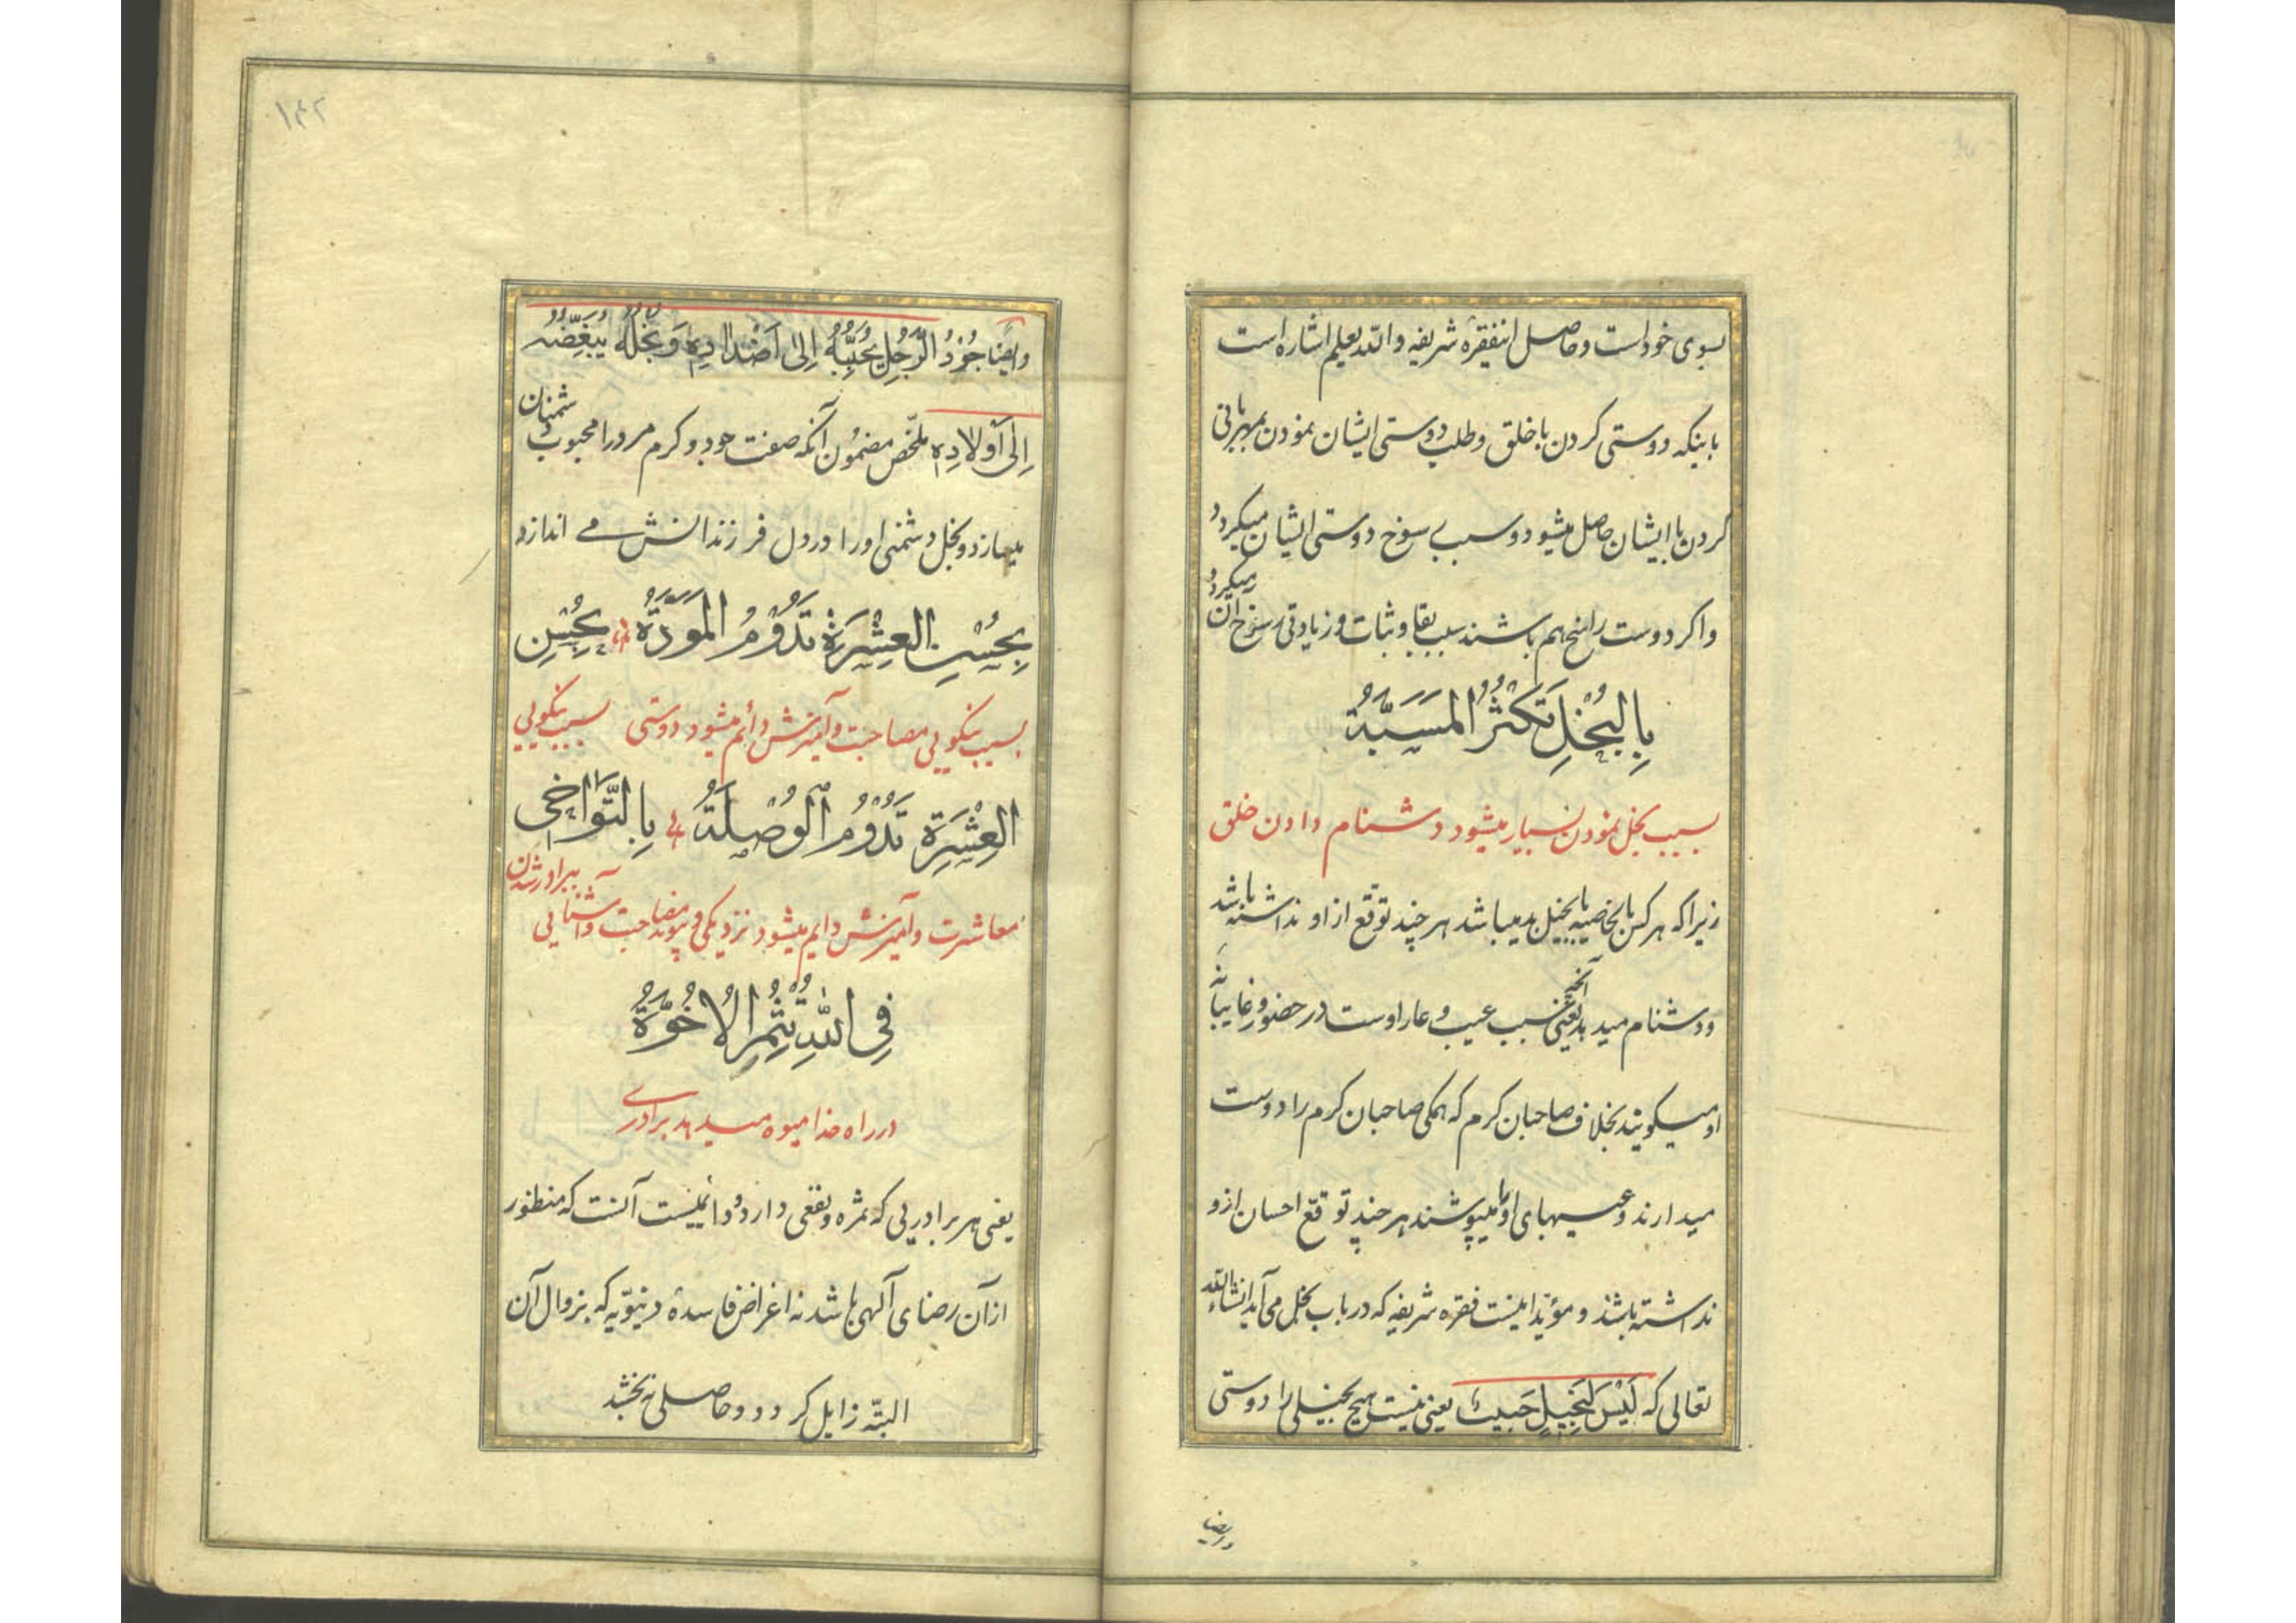 بسوی خود است و حاصل اینفقرۀ شریفه والله یعلم اشاره است
باینکه دوستی کردن با خلق و طلب دوستی ایشان نمودن بمهربانی
کردن با ایشان حاصل میشود و سبب رسوخ دوستی ایشان میگردد
و اگر دوست راسخ هم باشند سبب بقا و ثبات و زیادتی رسوخ آن میگردد
بِالبُخْلِ تَكْثُرُ المَسَبَّةُ
بسبب بخل نمودن بسیار میشود دشنام دادن خلق
زیرا که هر کس بالخاصیه با بخیل بد میباشد هر چند توقع از او نداشته باشد
و دشنام میدهد یعنی آنچه سبب عیب و عار اوست در حضور و غایبانه
او میگویند بخلاف صاحبان کرم که همگی صاحبان کرم را دوست
میدارند و عیبهای او را میپوشند هر چند توقع احسان از او
نداشته باشند و مؤید اینست فقره شریفه که در باب بخل می آید انشاءالله
تعالی که لَیْسَ لِبَخِیلٍ حَبِیبٌ یعنی نیست هیچ بخیلی را دوستی
و ایضا
وایضاً جُودُ الرَّجُلِ یُحَبِّبُهُ اِلیٰ اَضْدادِهِ وَ بُخْلُهُ یُبَغِّضُهُ
اِلیٰ اَوْلادِهِ ملخّص مضمون آنکه صفت جود و کرم مرد را محبوب دشمنان
میسازد و بخل دشمنی او را در دل فرزندانش می اندازد
بِحُسْنِ العِشْرَةِ تَدُومُ المَوَدَّةُ بِحُسْنِ
بسبب نیکویی مصاحبت و آمیزش دائم میشود دوستی بسبب نیکویی
العِشْرَةِ تَدُومُ الوُصْلَةُ بِالتَّواخی
معاشرت و آمیزش دایم میشود نزدیکی و پیوند مصاحبت و آشنایی ببرادر شدن
فِی اللهِ تُثْمِرُ الاُخُوَّةُ
در راه خدا میوه میدهد برادری
یعنی هر برادریی که ثمره و نفعی دارد و دائمیست آنست که منظور
از آن رضای آلهی باشد نه اغراض فاسدۀ دنیویّه که بزوال آن
البتّه زایل گردد و حاصلی نبخشد
۱۴۲